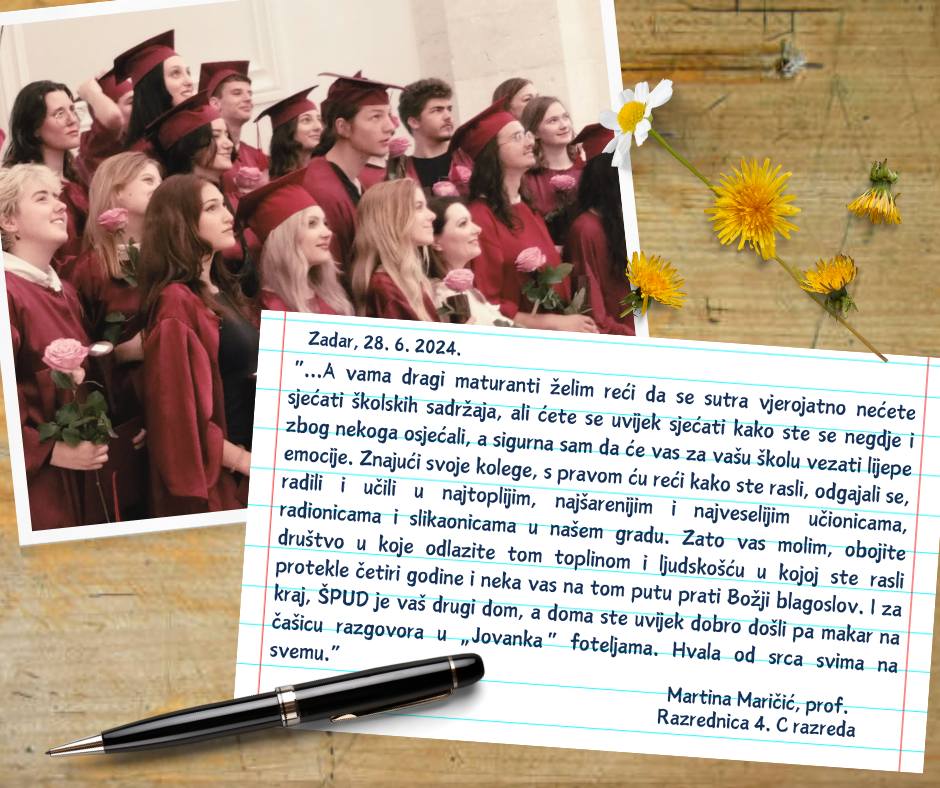 Zadar, 28. 6. 2024.
"...A vama dragi maturanti želim reći da se sutra vjerojatno nećete
sjećati školskih sadržaja, ali ćete se uvijek sjećati kako ste se negdje i
zbog nekoga osjećali, a sigurna sam da će vas za vašu školu vezati lijepe
emocije. Znajući svoje kolege, s pravom ću reći kako ste rasli, odgajali se,
radili i učili u najtoplijim, najšarenijim i najveselijim učionicama,
radionicama i slikaonicama u našem gradu. Zato vas molim, obojite
društvo u koje odlazite tom toplinom i ljudskošću u kojoj ste rasli
protekle četiri godine i neka vas na tom putu prati Božji blagoslov. I za
kraj, ŠPUD je vaš drugi dom, a doma ste uvijek dobro došli pa makar na
čašicu razgovora u „Jovanka" foteljama. Hvala od srca svima na
svemu."
Martina Maričić, prof.
Razrednica 4. C razreda